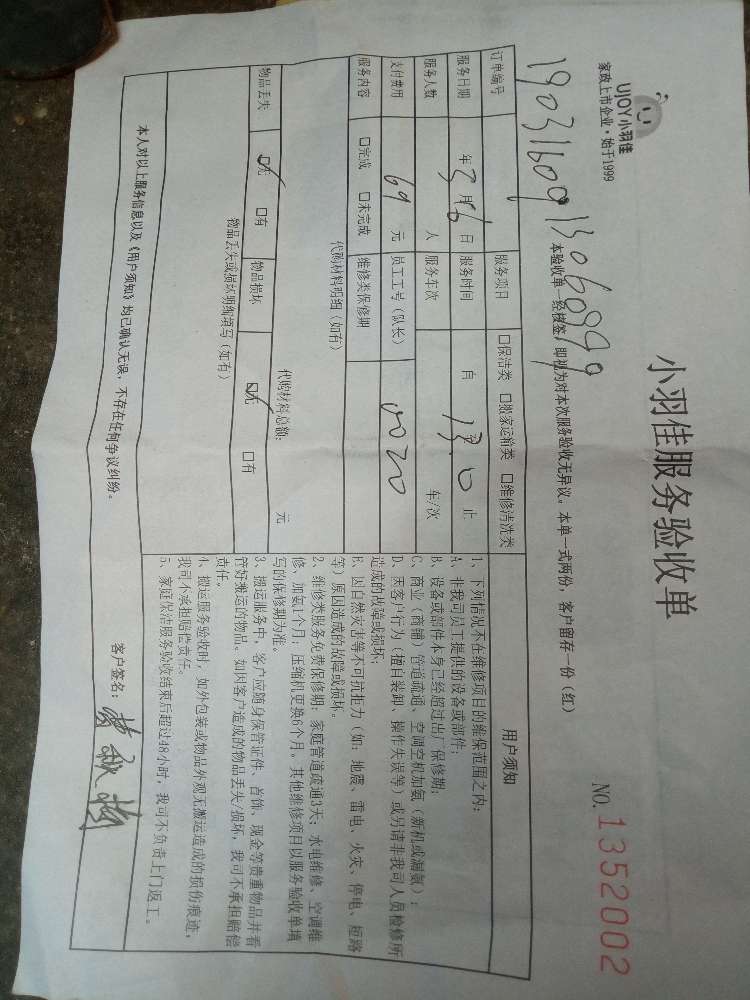 UJOY小羽佳
家政上市企业·始于1999
小羽佳服务验收单
NO. 1352002
本验收单一经核签,即视为对本次服务验收无异议。本单一式两份,客户留存一份(红)
订单编号
服务项目 口保洁类 口搬家运输类 口维修清洗类
服务日期 年3月16日 服务时间 自 13.0 止
服务人数 人 服务车次 车/次
支付费用 69 元 员工工号(队长) 0020
服务内容 口完成 口未完成 维修类保修期
代购材料明细(如有)
代购材料总额: 元
物品丢失 口无 口有 物品损坏 口无 口有
物品丢失或损坏明细填写(如有)
用户须知
1、下列情况不在维修项目的维保范围之内:
A、非我司员工提供的设备或部件;
B、设备或部件本身已经超过出厂保修期;
C、商业(商铺)管道疏通、空调空机加氨(新机或漏氨);
D、因客户行为(擅自装卸、操作失误等)或另请非我司人员检修所
造成的故障或损坏;
E、因自然灾害等不可抗拒力(如:地震、雷电、火灾、停电、短路
等)原因造成的故障或损坏。
2、维修类服务免费保修期:家庭管道疏通3天;水电维修、空调维
修、加氨1个月;压缩机更换6个月。其他维修项目以服务验收单填
写的保修期为准。
3、搬运服务中,客户应随身保管证件、首饰、现金等贵重物品并看
管好搬运的物品。如因客户造成的物品丢失/损坏,我司不承担赔偿
责任。
4、搬运服务验收时,如外包装或物品外观无搬运造成的损伤痕迹,
我司不承担赔偿责任。
5、家庭保洁服务验收结束后超过48小时,我司不负责上门返工。
本人对以上服务信息以及《用户须知》均已确认无误,不存在任何争议纠纷。
客户签名: